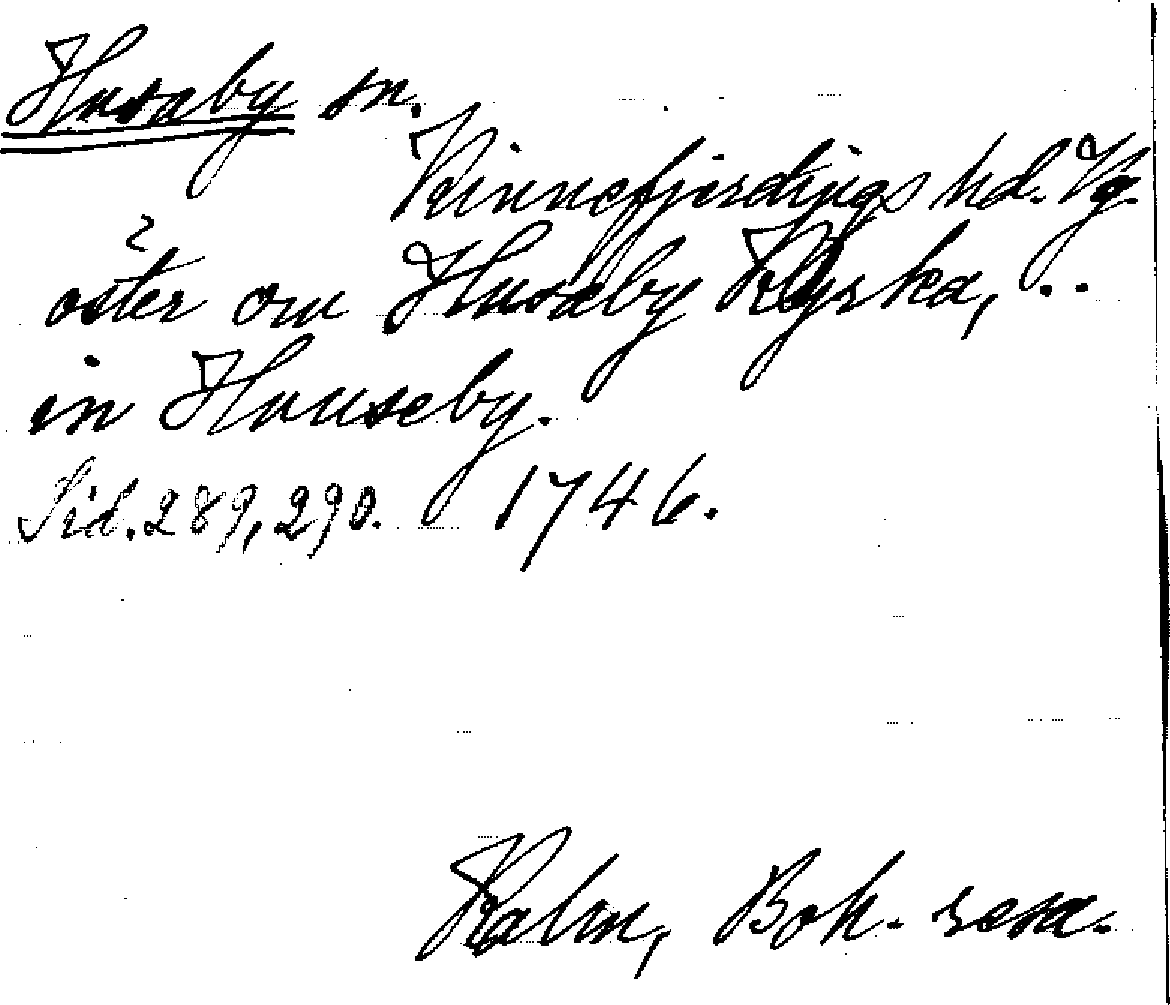 Husaby sn.
Kinnefjerdings hd. Vg.
öster om Husaby Kyrka, ..
in Huuseby.
Sid. 289, 290. 1746.
Kalm, Boh. resa.